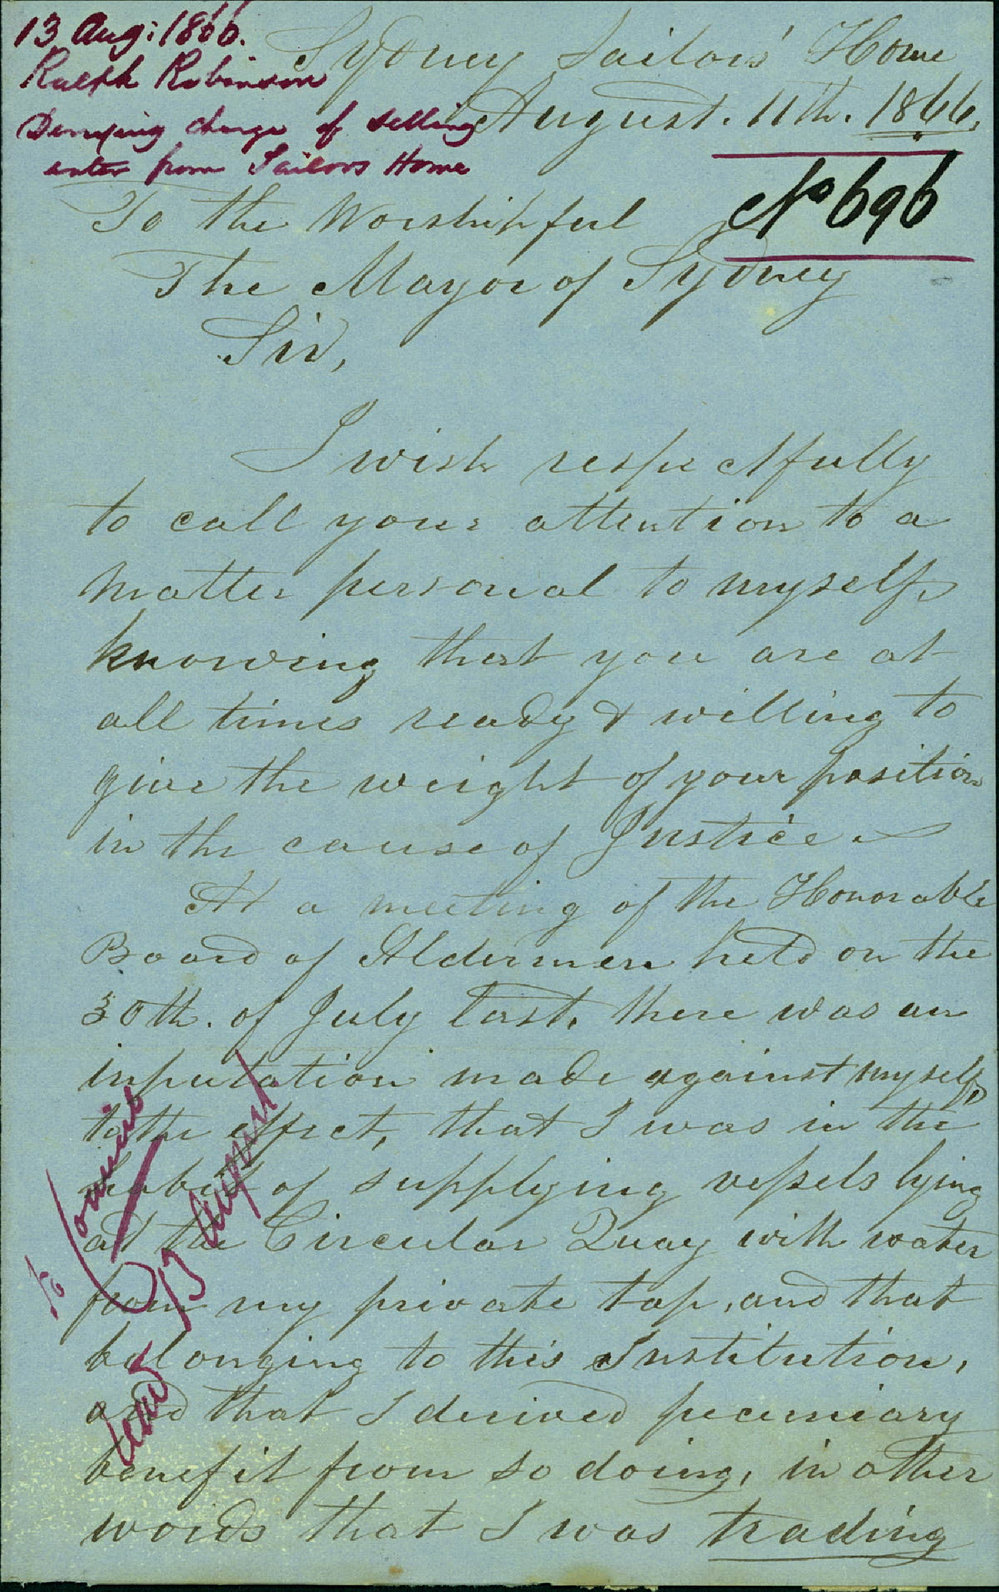 13 Aug: 1866.
Ralph Robinson
Denying charge of selling
water from Sailors Home
Sydney Sailors' Home
August. 11th. 1866.
No 696
To the Worshipful
The Mayor of Sydney
Sir,
I wish respectfully
to call your attention to a
matter personal to myself,
knowing that you are at
all times ready & willing to
give the weight of your position
in the cause of Justice
At a meeting of the Honorable
Board of Aldermen held on the
30th. of July last, there was an
inputation made against myself,
to the effect, that I was in the
habit of supplying vessels lying
at the Circular Quay with water
from my private tap, and that
belonging to this Institution,
and that I derived pecuniary
benefit from so doing, in other
words that I was trading
To Council
read 13 August